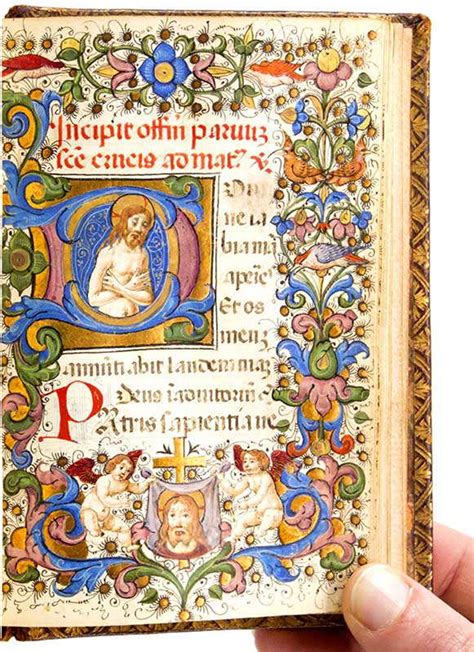 Incipit offm̄ paruuz
scē crucis ad mat? x.
ne la
bia mā
aperiē
Et os
meuz
annuntiabit laudem
Deus
Patris sapientia ue